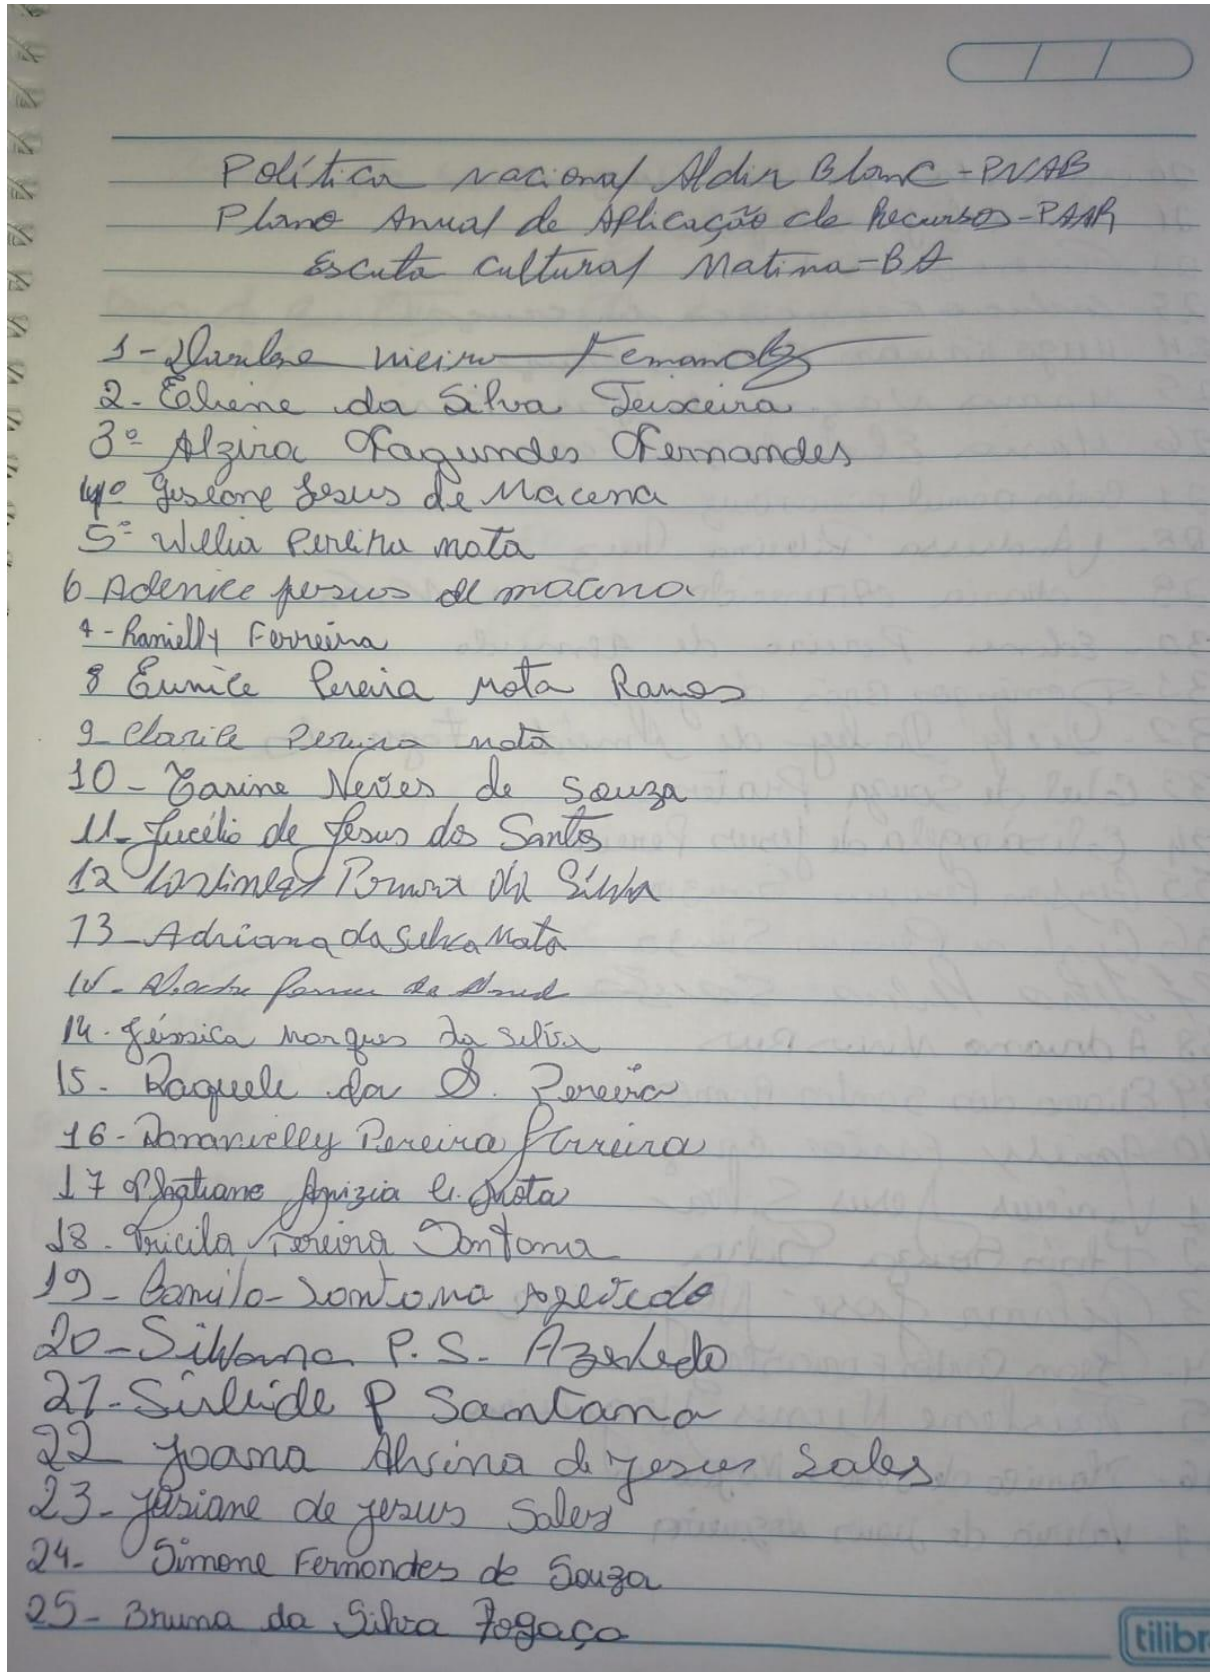 Política Nacional Aldir Blanc - PNAB
Plano Anual de Aplicação de Recursos - PAAR
Escuta Cultural Matina-BA
1 - Vieira Fernandes
2. Eliene da Silva Teixeira
3º Alzira Fagundes Fernandes
4º Giseone Jesus de Macena
5º Wellia Pereira Mota
6 Adenice Jesus de Macena
7 - Ranielly Ferreira
8 Eunice Pereira Mota Ramos
9 Clarice Pereira Mota
10 - Tarine Neves de Souza
11 - Jucélio de Jesus dos Santos
12 da Silva
13 - Adriana da Silva Mota
14 -
14. Jéssica Marques da Silva
15. Raquele da S. Pereira
16 - Pereira Ferreira
17 Mota
18. Pereira Santana
19 - Camilo - Santana Azevedo
20 - Silvana P. S. Azevedo
21 - Sirleide P Santana
22 Joana Alvina d Jesus Sales
23 - Josiane de Jesus Sales
24. Simone Fernandes de Souza
25 - Bruna da Silva Fogaça
tilibr